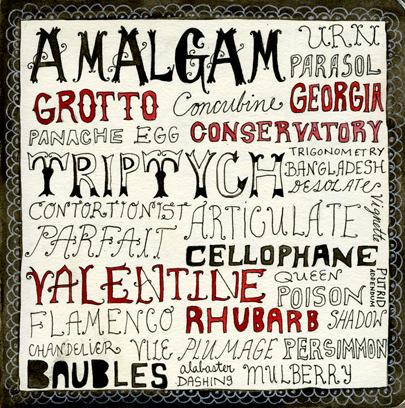 AMALGAM URN
PARASOL
GROTTO Concubine GEORGIA
PANACHE EGG CONSERVATORY
TRIPTYCH TRIGONOMETRY
BANGLADESH
DESOLATE
CONTORTIONIST ARTICULATE Vignette
PARFAIT
CELLOPHANE
VALENTINE QUEEN PUTRID
POISON ADDENDUM
FLAMENCO RHUBARB SHADOW
CHANDELIER VIE PLUMAGE PERSIMMON
BAUBLES alabaster MULBERRY
DASHING